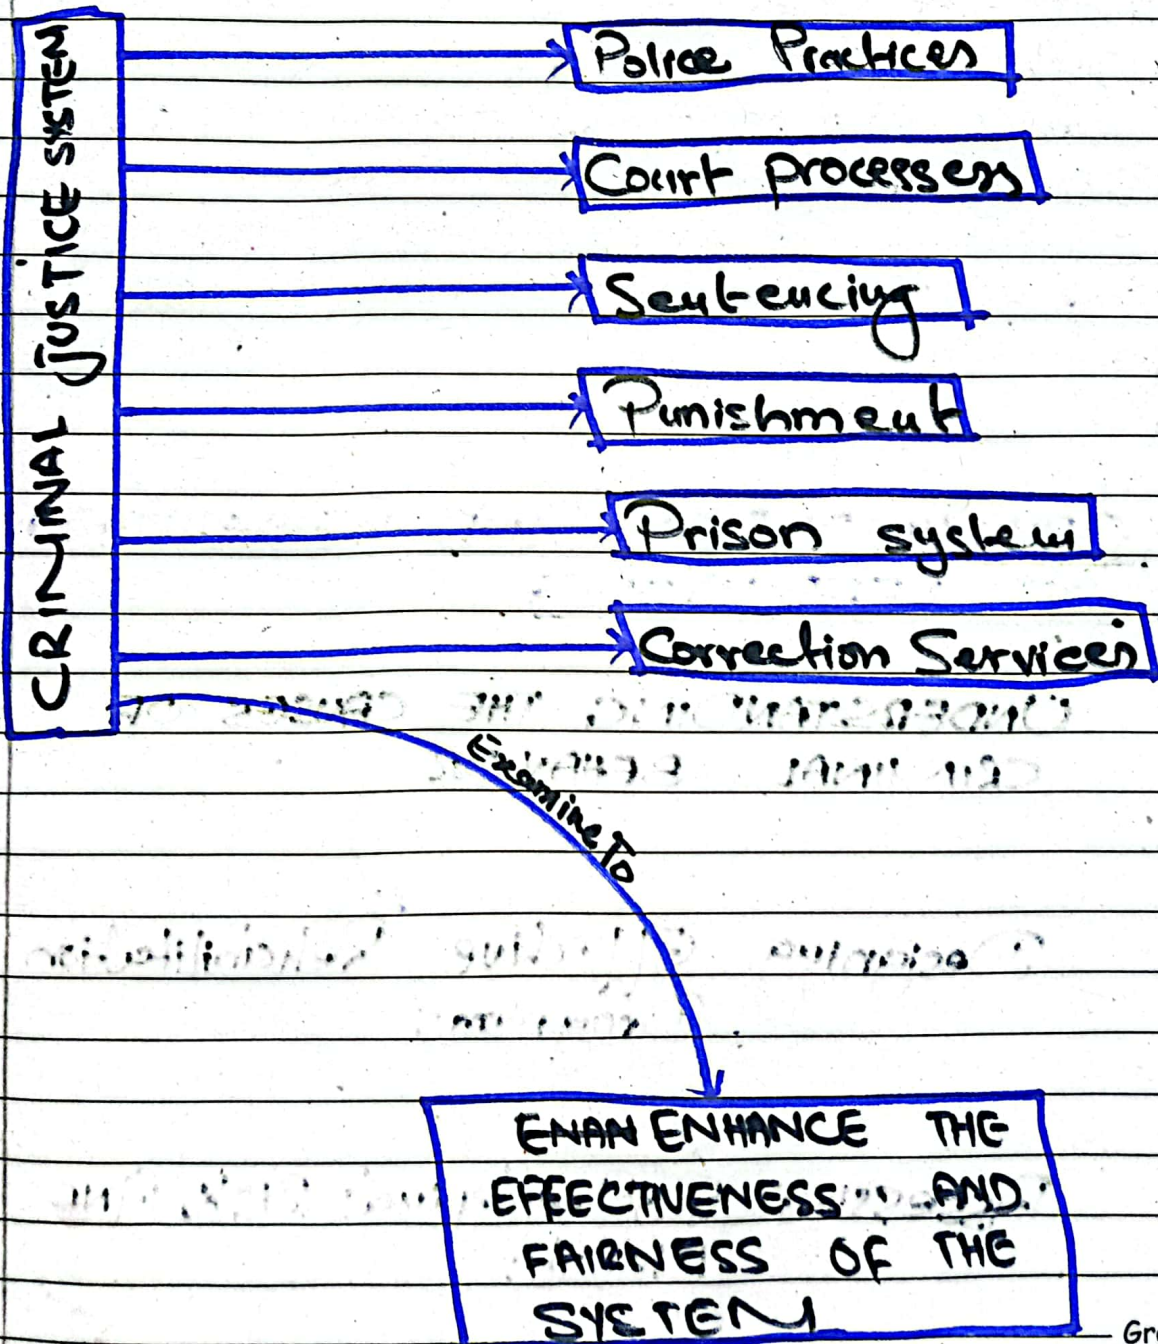 CRIMINAL JUSTICE SYSTEM
Police Practices
Court processess
Sentencing
Punishment
Prison system
Correction Services
Examine To
ENAN ENHANCE THE
EFEECTIVENESS AND
FAIRNESS OF THE
SYSTEM
Gr